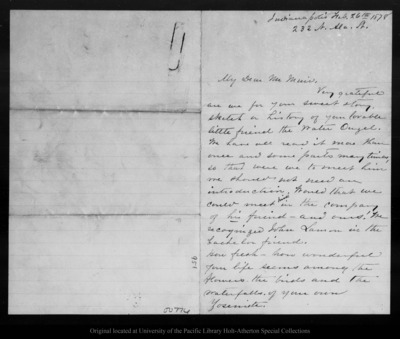 Indianapolis Feb. 26th 1878
232 N. Ala. St.
My Dear Mr Muir.
Very grateful
are we for your sweet story,
sketch or history of your lovable
little friend the Water Ouzel.
We have all read it more than
once and some parts many times,
so that were we to meet him
we should not need an
introduction, Would that we
could meet in the company
of his friend - and ours! We
recognized John Lamon in the
bachelor friend.
How fresh - how wonderful
your life seems among the
flowers the birds and the
waterfalls of your own
Yosemite.
Original located at University of the Pacific Library Holt-Atherton Special Collections